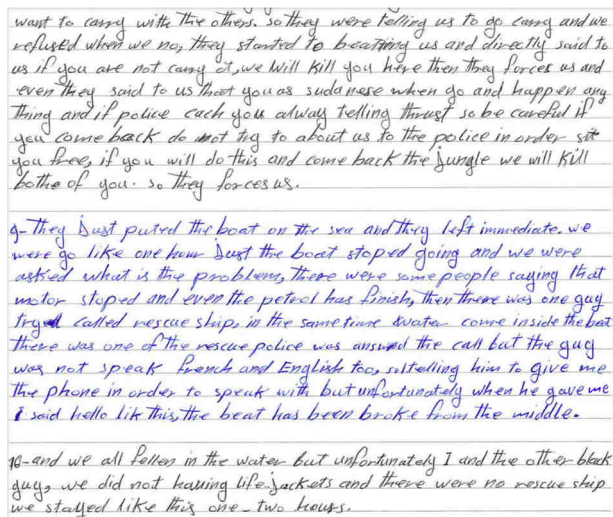 want to carry with the others. so they were telling us to go carry and we
refused when we no, they started to beatting us and directly said to
us if you are not carry it, we will kill you here then they forces us and
even they said to us that you as sudanese when go and happen any
thing and if police cach you alway telling thrust so be careful if
you come back do not try to about us to the police in order
you free, if you will do this and come back the jungle we will kill
bothe of you. so they forces us.
9- They Just puted the boat on the sea and they left immediate. we
were go like one hour Just the boat stoped going and we were
asked what is the problem, there were some people saying that
motor stoped and even the petrol has finish, then there was one guy
try called rescue ship, in the same time water come inside the boat
there was one of the rescue police was answed the call but the guy
was not speak french and English too, so telling him to give me
the phone in order to speak with but unfortunately when he gave me
I said hello lik this, the beat has been broke from the middle.
10- and we all fellen in the water but unfortunately I and the other black
guy, we did not having life.jackets and there were no rescue ship
we stalled like this one - two hours.